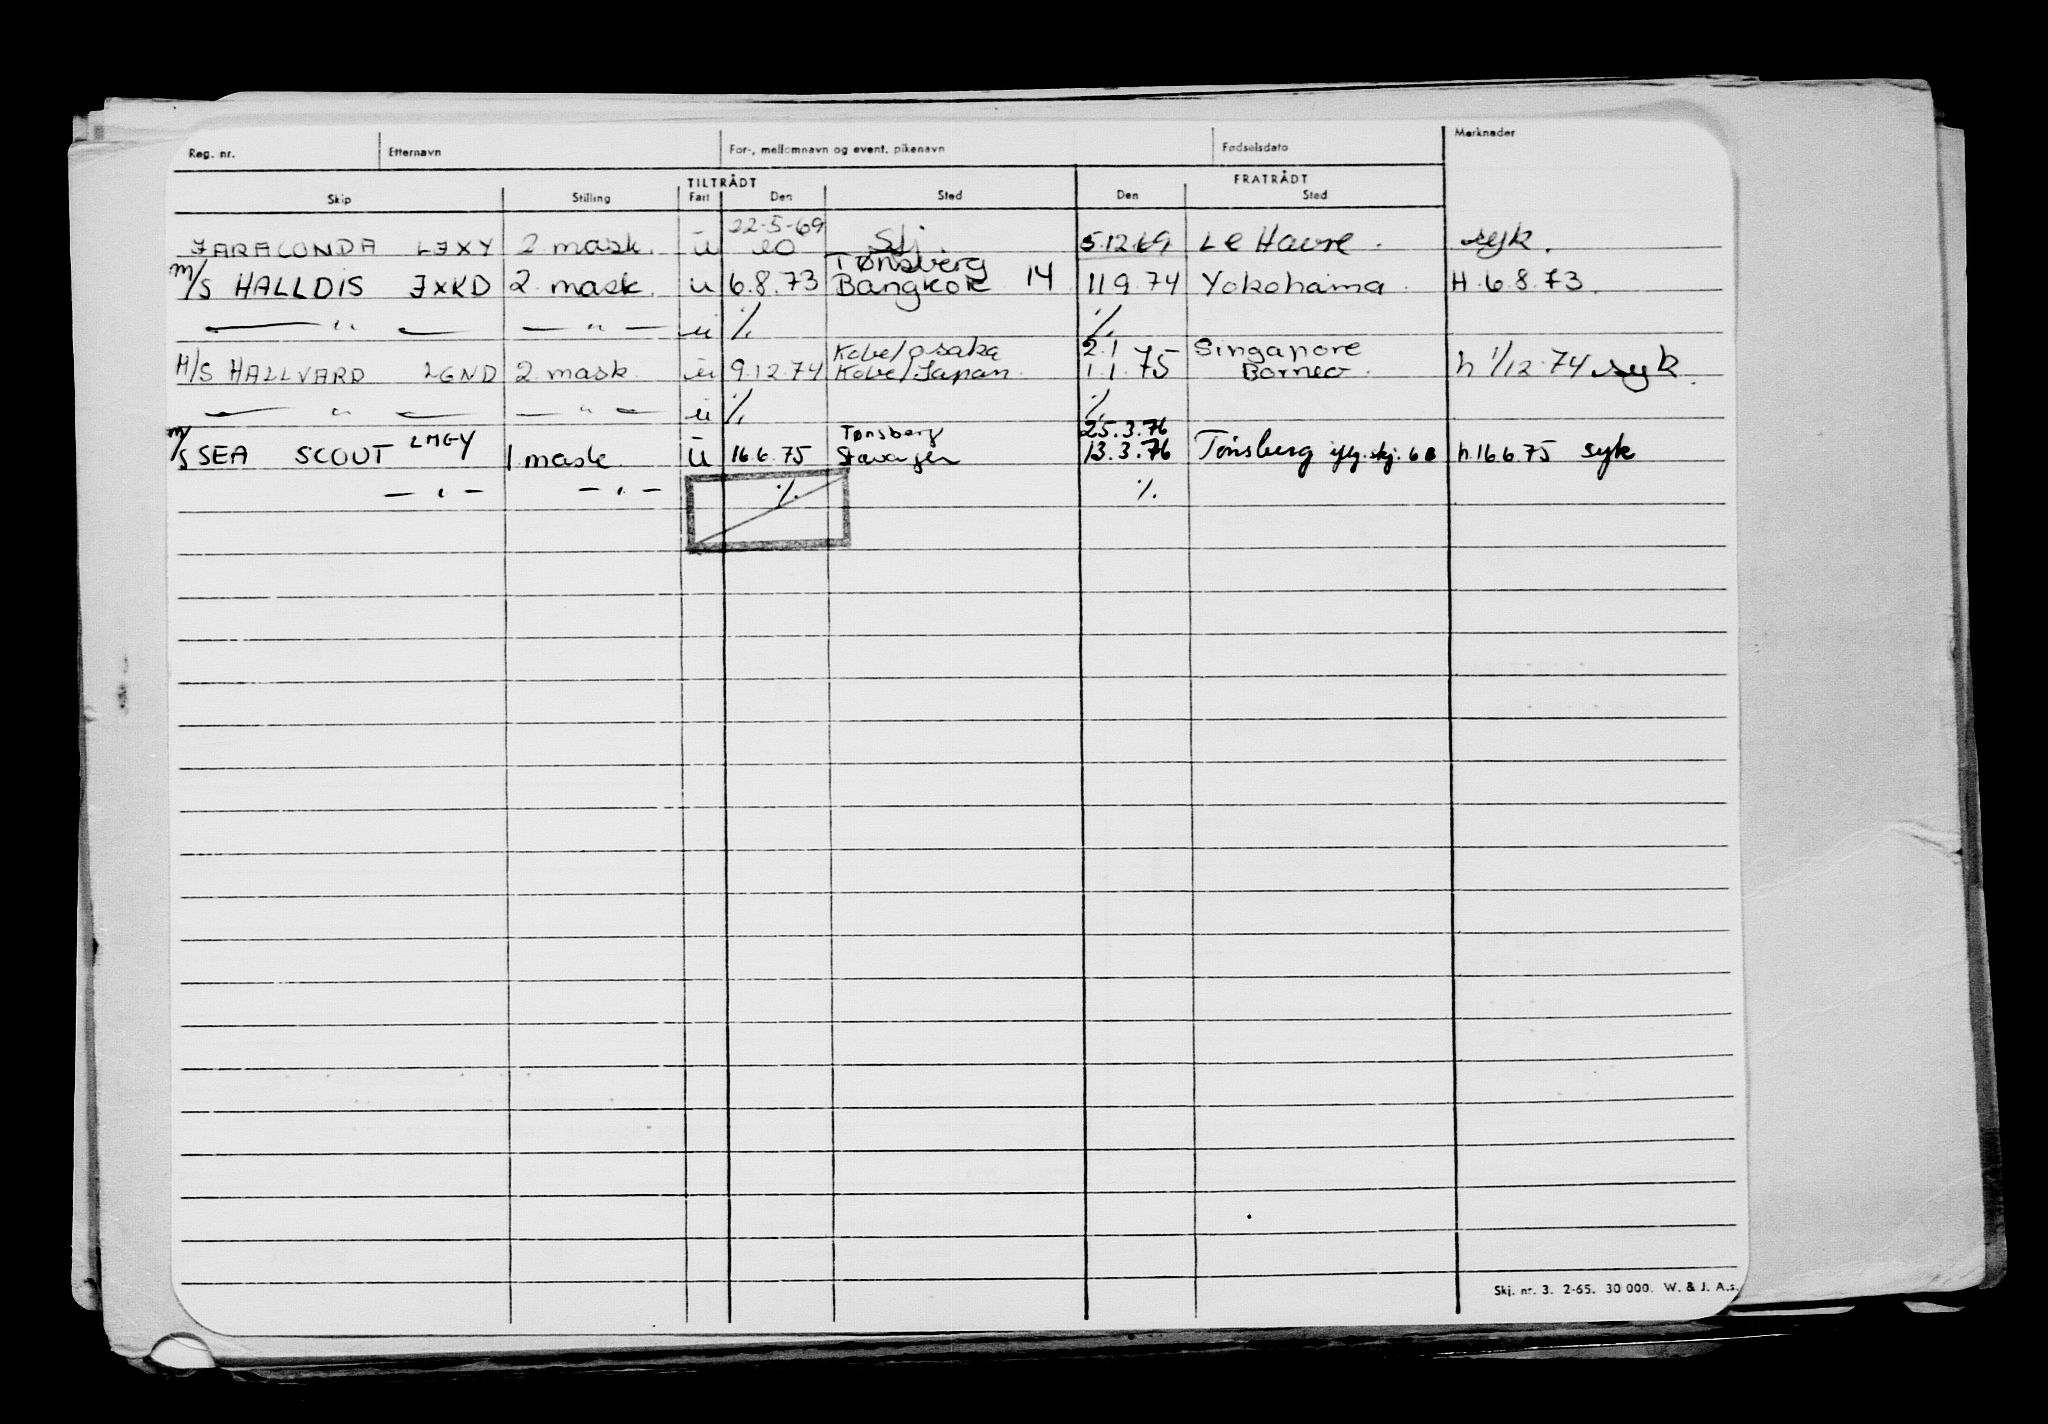 Reg. nr. Etternavn For-, mellomnavn og event. pikenavn Fødselsdato Merknader
TILTRÅDT FRATRÅDT
Skip Stilling Fart Den Sted Den Sted
22-5-69
JARACONDA LJXY 2 mask. u 5.12.69 Le Havre. syk.
Tønsberg
M/S HALLDIS JXKD 2 mask. u 6.8.73 Bangkok 14 11 9.74 Yokohama. H. 6.8.73.
— " — — " — u % %
Kobe/Osaka 2.1 Singapore
M/S HALLVARD LGND 2 mask. u 9.12.74 Kobe/Japan. 1.1.75 Borneo. h 1/12.74 syk.
— " — — " — u % %
Tønsberg 25.3.76
M/S SEA SCOUT LMGY 1 mask u 16.6.75 Stavanger 13.3.76 Tønsberg iflg. skj. 6 h. 16.6.75 syk
— " — — " — % %
Skj. nr. 3. 2-65. 30 000. W. & J. A.s.